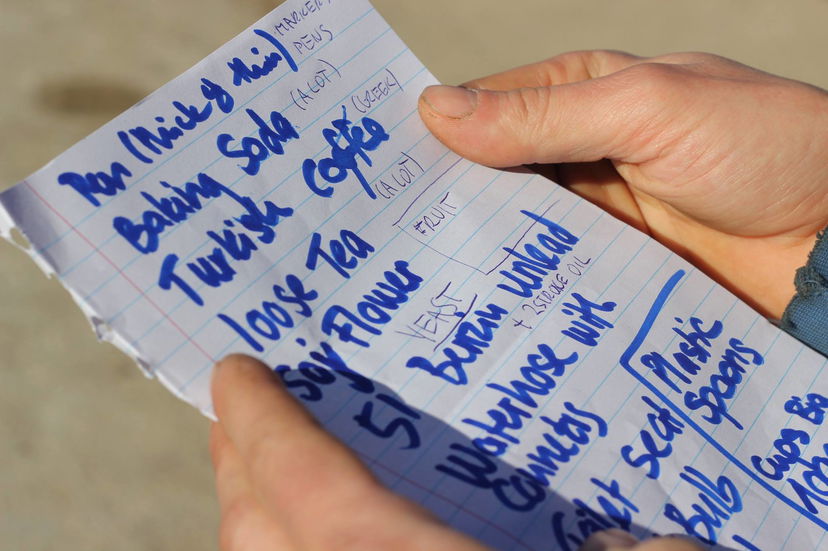 MARKER
PENS
Pan (thick & thin)
Baking Soda (A LOT)
Turkish Coffee (GREEK)
loose Tea (A LOT)
FRUIT
Soy Flower
YEAST
5l Benzin unlead
+ 2STROKE OIL
Waterhose with
Connects
Toilet seat
Bulb
Plastic
Spoons
Cups Big
100